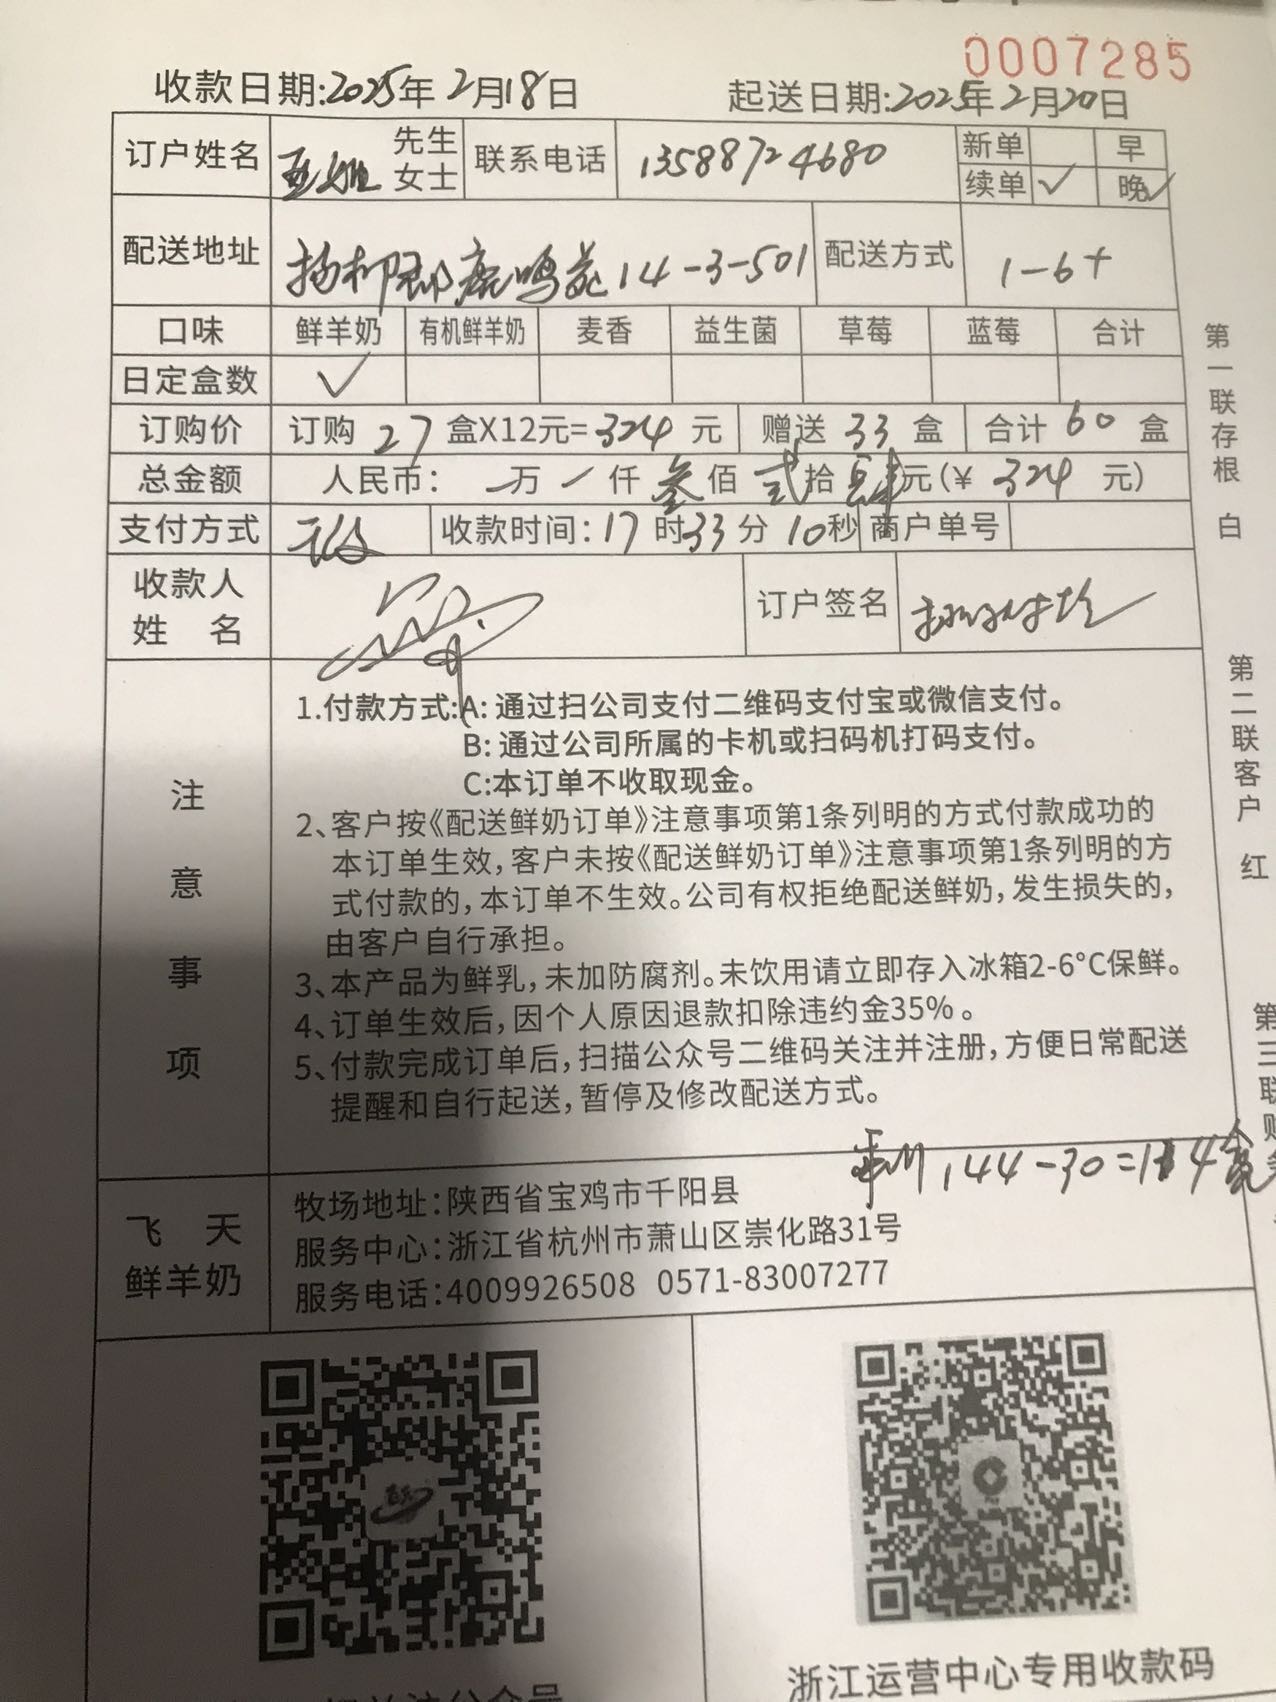 0007285
收款日期:2025年2月18日 起送日期:2025年2月20日
订户姓名 先生 女士 联系电话 13588724680 新单 早
续单 ✓ 晚 ✓
配送地址 杨柳郡鹿鸣苑14-3-501 配送方式 1-6+
口味 鲜羊奶 有机鲜羊奶 麦香 益生菌 草莓 蓝莓 合计
日定盒数 ✓
订购价 订购 27 盒X12元=324 元 赠送 33 盒 合计 60 盒
总金额 人民币: 一万 一仟 叁佰 贰拾 肆元(¥ 324 元)
支付方式 收款时间:17时33分10秒 商户单号
收款人
姓 名 订户签名
注意事项
1.付款方式:A:通过扫公司支付二维码支付宝或微信支付。
B:通过公司所属的卡机或扫码机打码支付。
C:本订单不收取现金。
2、客户按《配送鲜奶订单》注意事项第1条列明的方式付款成功的
本订单生效,客户未按《配送鲜奶订单》注意事项第1条列明的方
式付款的,本订单不生效。公司有权拒绝配送鲜奶,发生损失的,
由客户自行承担。
3、本产品为鲜乳,未加防腐剂。未饮用请立即存入冰箱2-6°C保鲜。
4、订单生效后,因个人原因退款扣除违约金35%。
5、付款完成订单后,扫描公众号二维码关注并注册,方便日常配送
提醒和自行起送,暂停及修改配送方式。
144-30=114盒
飞天
鲜羊奶
牧场地址:陕西省宝鸡市千阳县
服务中心:浙江省杭州市萧山区崇化路31号
服务电话:4009926508 0571-83007277
浙江运营中心专用收款码
第一联存根 白
第二联客户 红
第三联